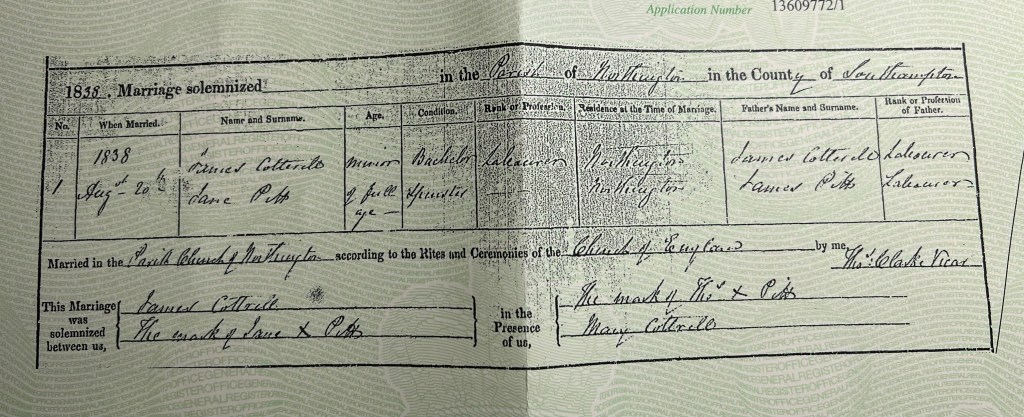 Application Number 13609772/1
1838. Marriage solemnized in the Parish of Northington in the County of Southampton
No. When Married. Name and Surname. Age. Condition. Rank or Profession. Residence at the Time of Marriage. Father's Name and Surname. Rank or Profession of Father.
1838 James Cotterill minor Bachelor Labourer Northington James Cotterill Labourer
1 Augst 20th Jane Pitt of full age Spinster Northington James Pitt Labourer
Married in the Parish Church of Northington according to the Rites and Ceremonies of the Church of England by me, Thos. Clarke Vicar
This Marriage was solemnized between us, James Cottrill
The mark of Jane X Pitt
in the Presence of us, The mark of Thos X Pitt
Mary Cottrill